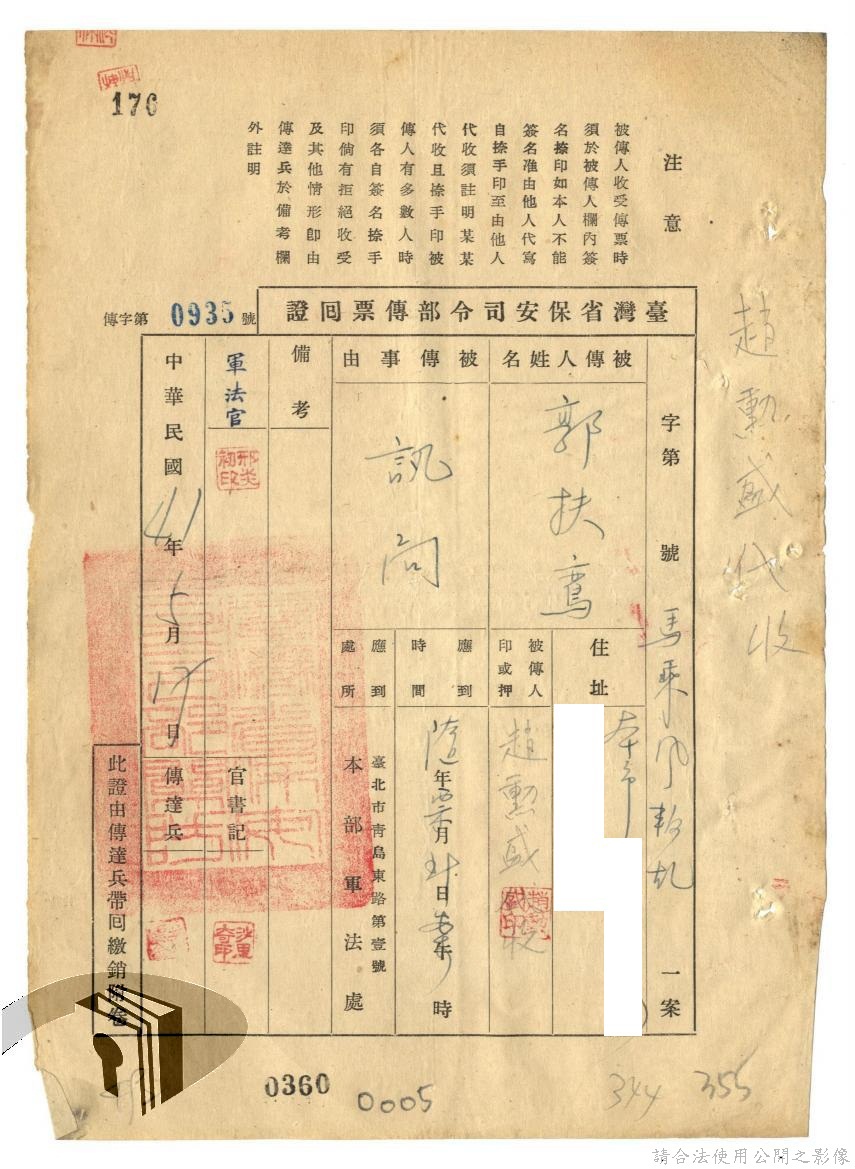 176
注意
被傳人收受傳票時
須於被傳人欄內簽
名捺印如本人不能
簽名准由他人代寫
自捺手印至由他人
代收須註明某某
代收且捺手印被
傳人有多數人時
須各自簽名捺手
印倘有拒絕收受
及其他情形卽由
傳達兵於備考欄
外註明
趙勳盛代收
臺灣省保安司令部傳票囘證
傳字第0935號
字第 號 馬乘風叛乱 一案
被傳人姓名
郭扶鸞
住址
本市
被傳人
印或押
趙勳盛
被傳事由
訊问
應到
時間
隨年 月 日 時
應到
處所
臺北市靑島東路第壹號
本部軍法處
備考
軍法官
邢炎初印
官書記
中華民國41年5月17日
傳達兵
此證由傳達兵帶囘繳銷附卷
0360
0005
344
355
請合法使用公開之影像